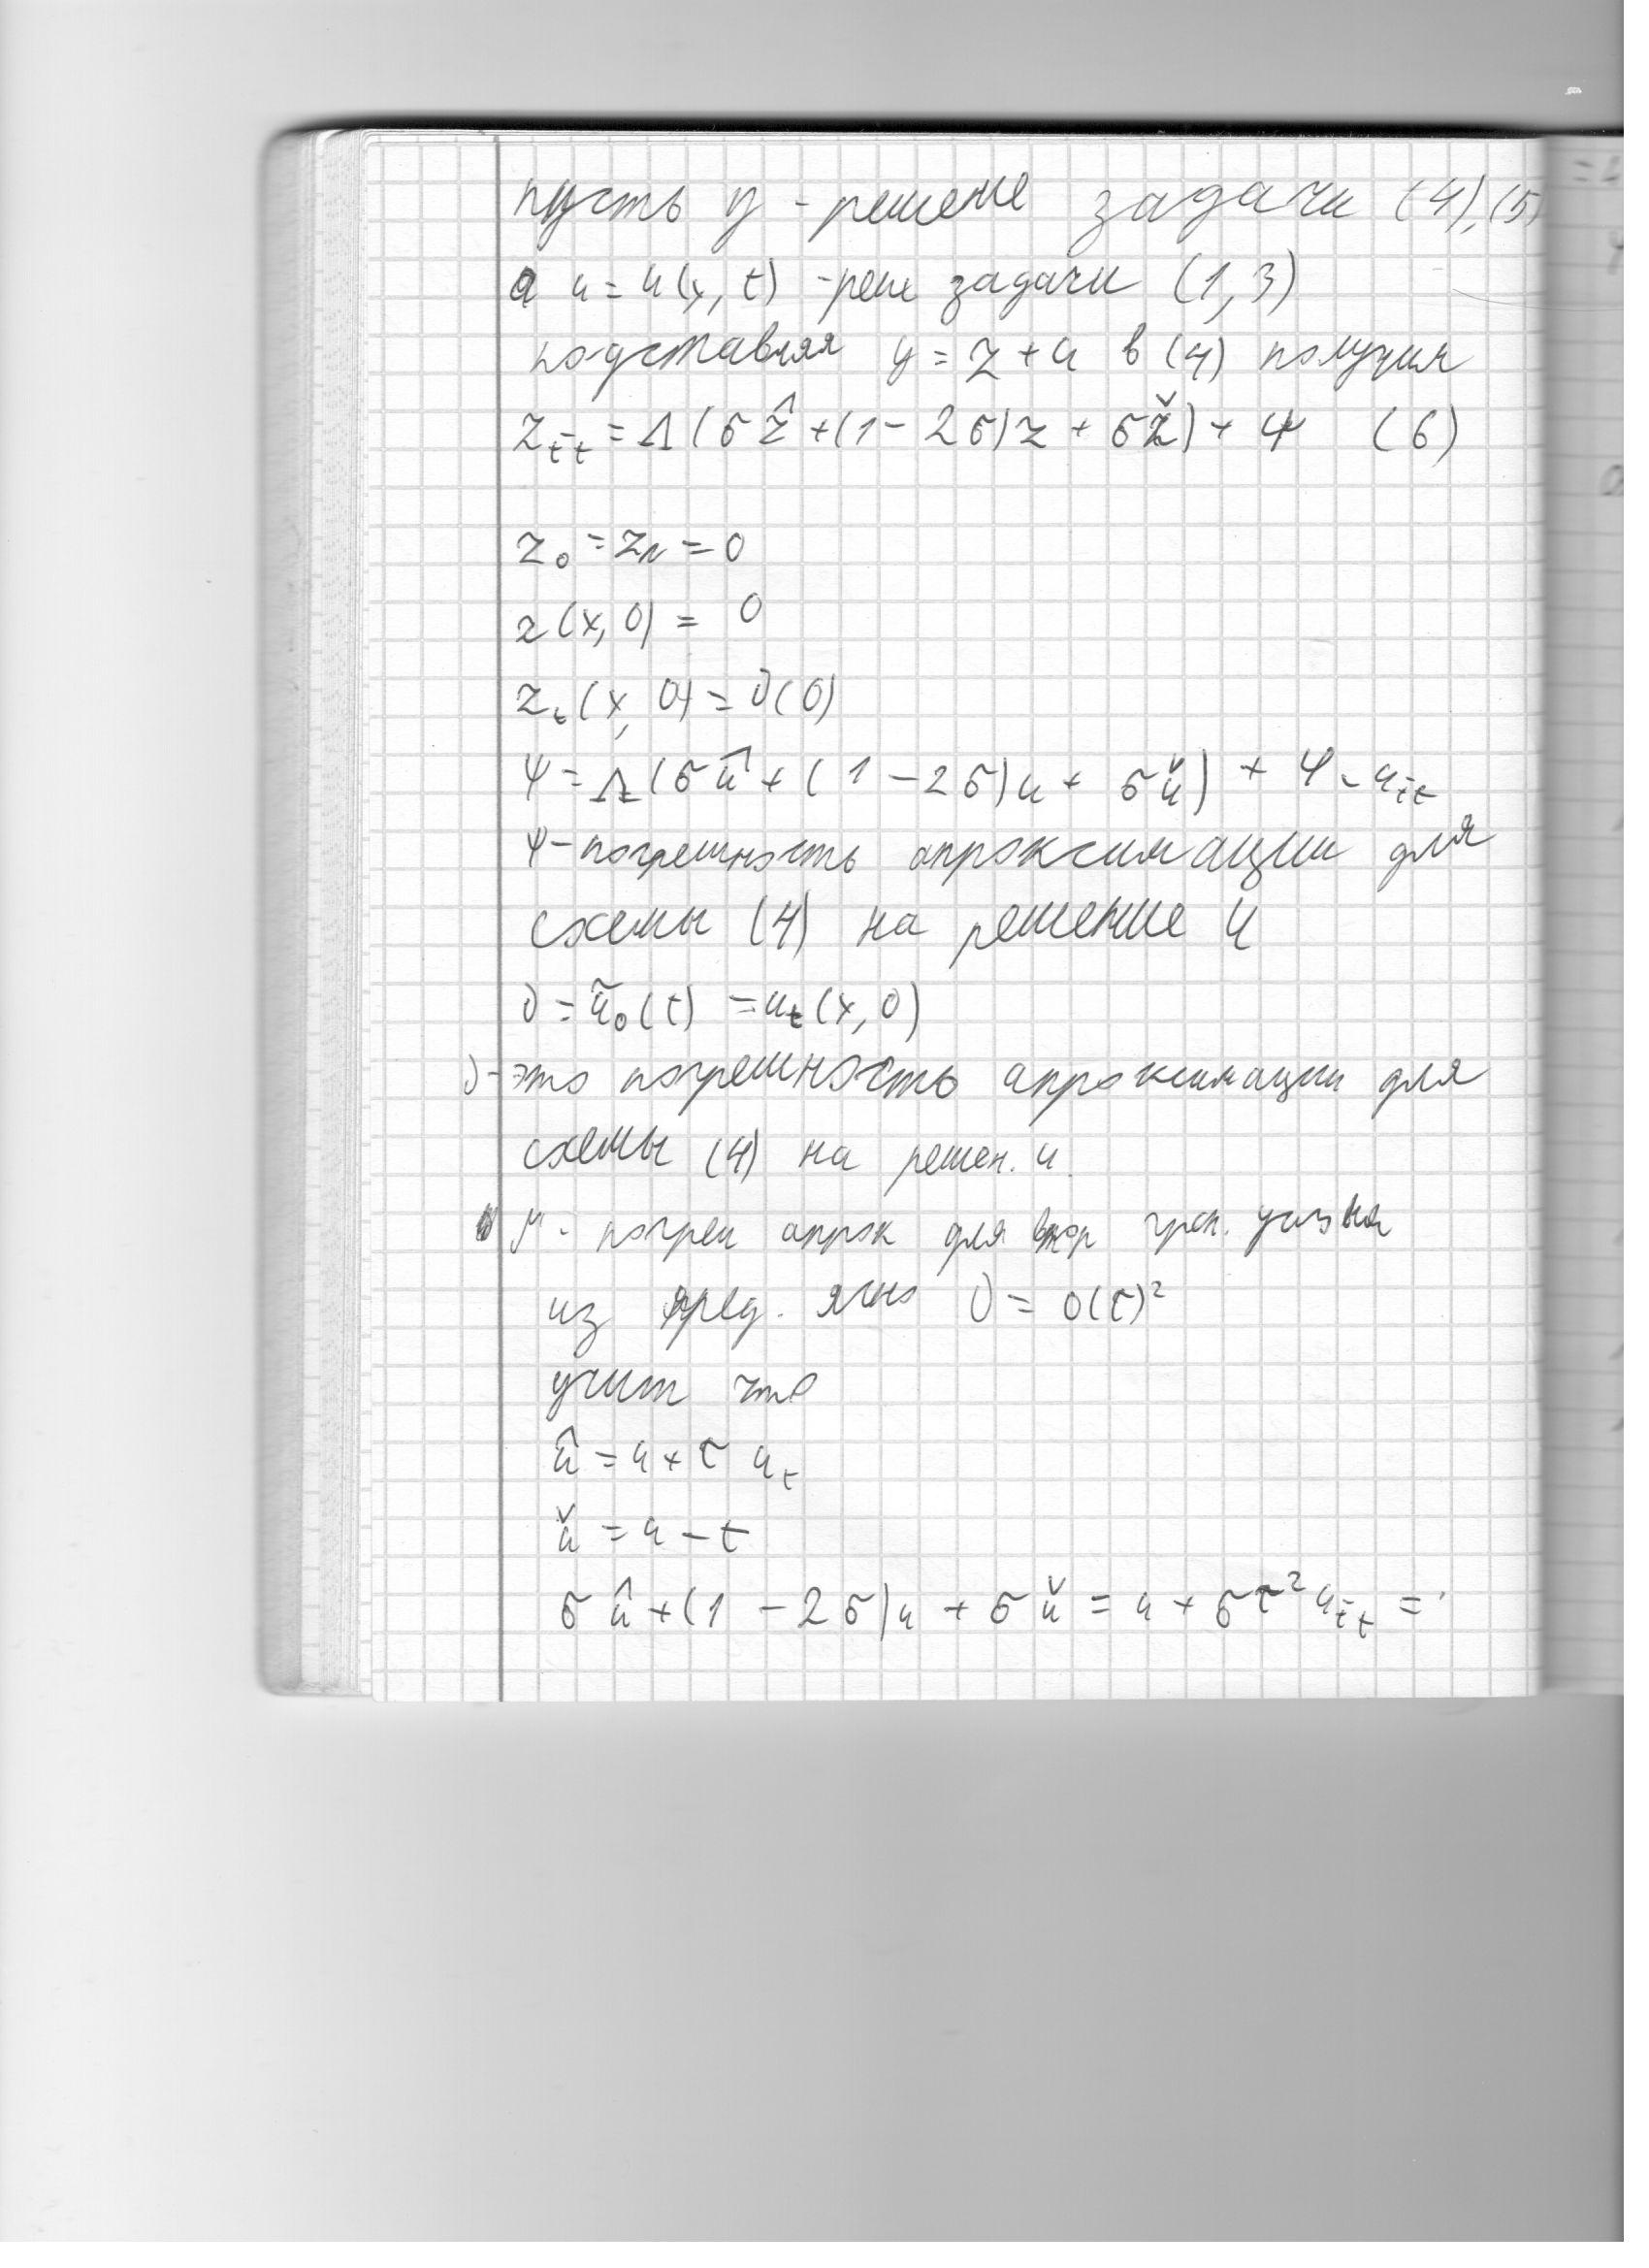 пусть y - решение задачи (4), (5)
а u = u(x, t) - реш задачи (1, 3)
подставляя y = z + u в (4) получим
z_t̄t = Λ(σẑ + (1 - 2σ)z + σž) + ψ (6)
z₀ = z_N = 0
z(x, 0) = 0
z_t(x, 0) = ν(0)
ψ = Λ(σû + (1 - 2σ)u + σǔ) + φ - u_t̄t
ψ - погрешность апроксимации для
схемы (4) на решение u
ν = ũ₀(t) = u_t(x, 0)
ν - это погрешность апроксимации для
схемы (4) на решен. u.
- погреш апрок для втор
из пред. ясно ν = 0(τ)²
учит что
û = u + τ u_t
ǔ = u - t
σû + (1 - 2σ)u + σǔ = u + στ² u_t̄t =